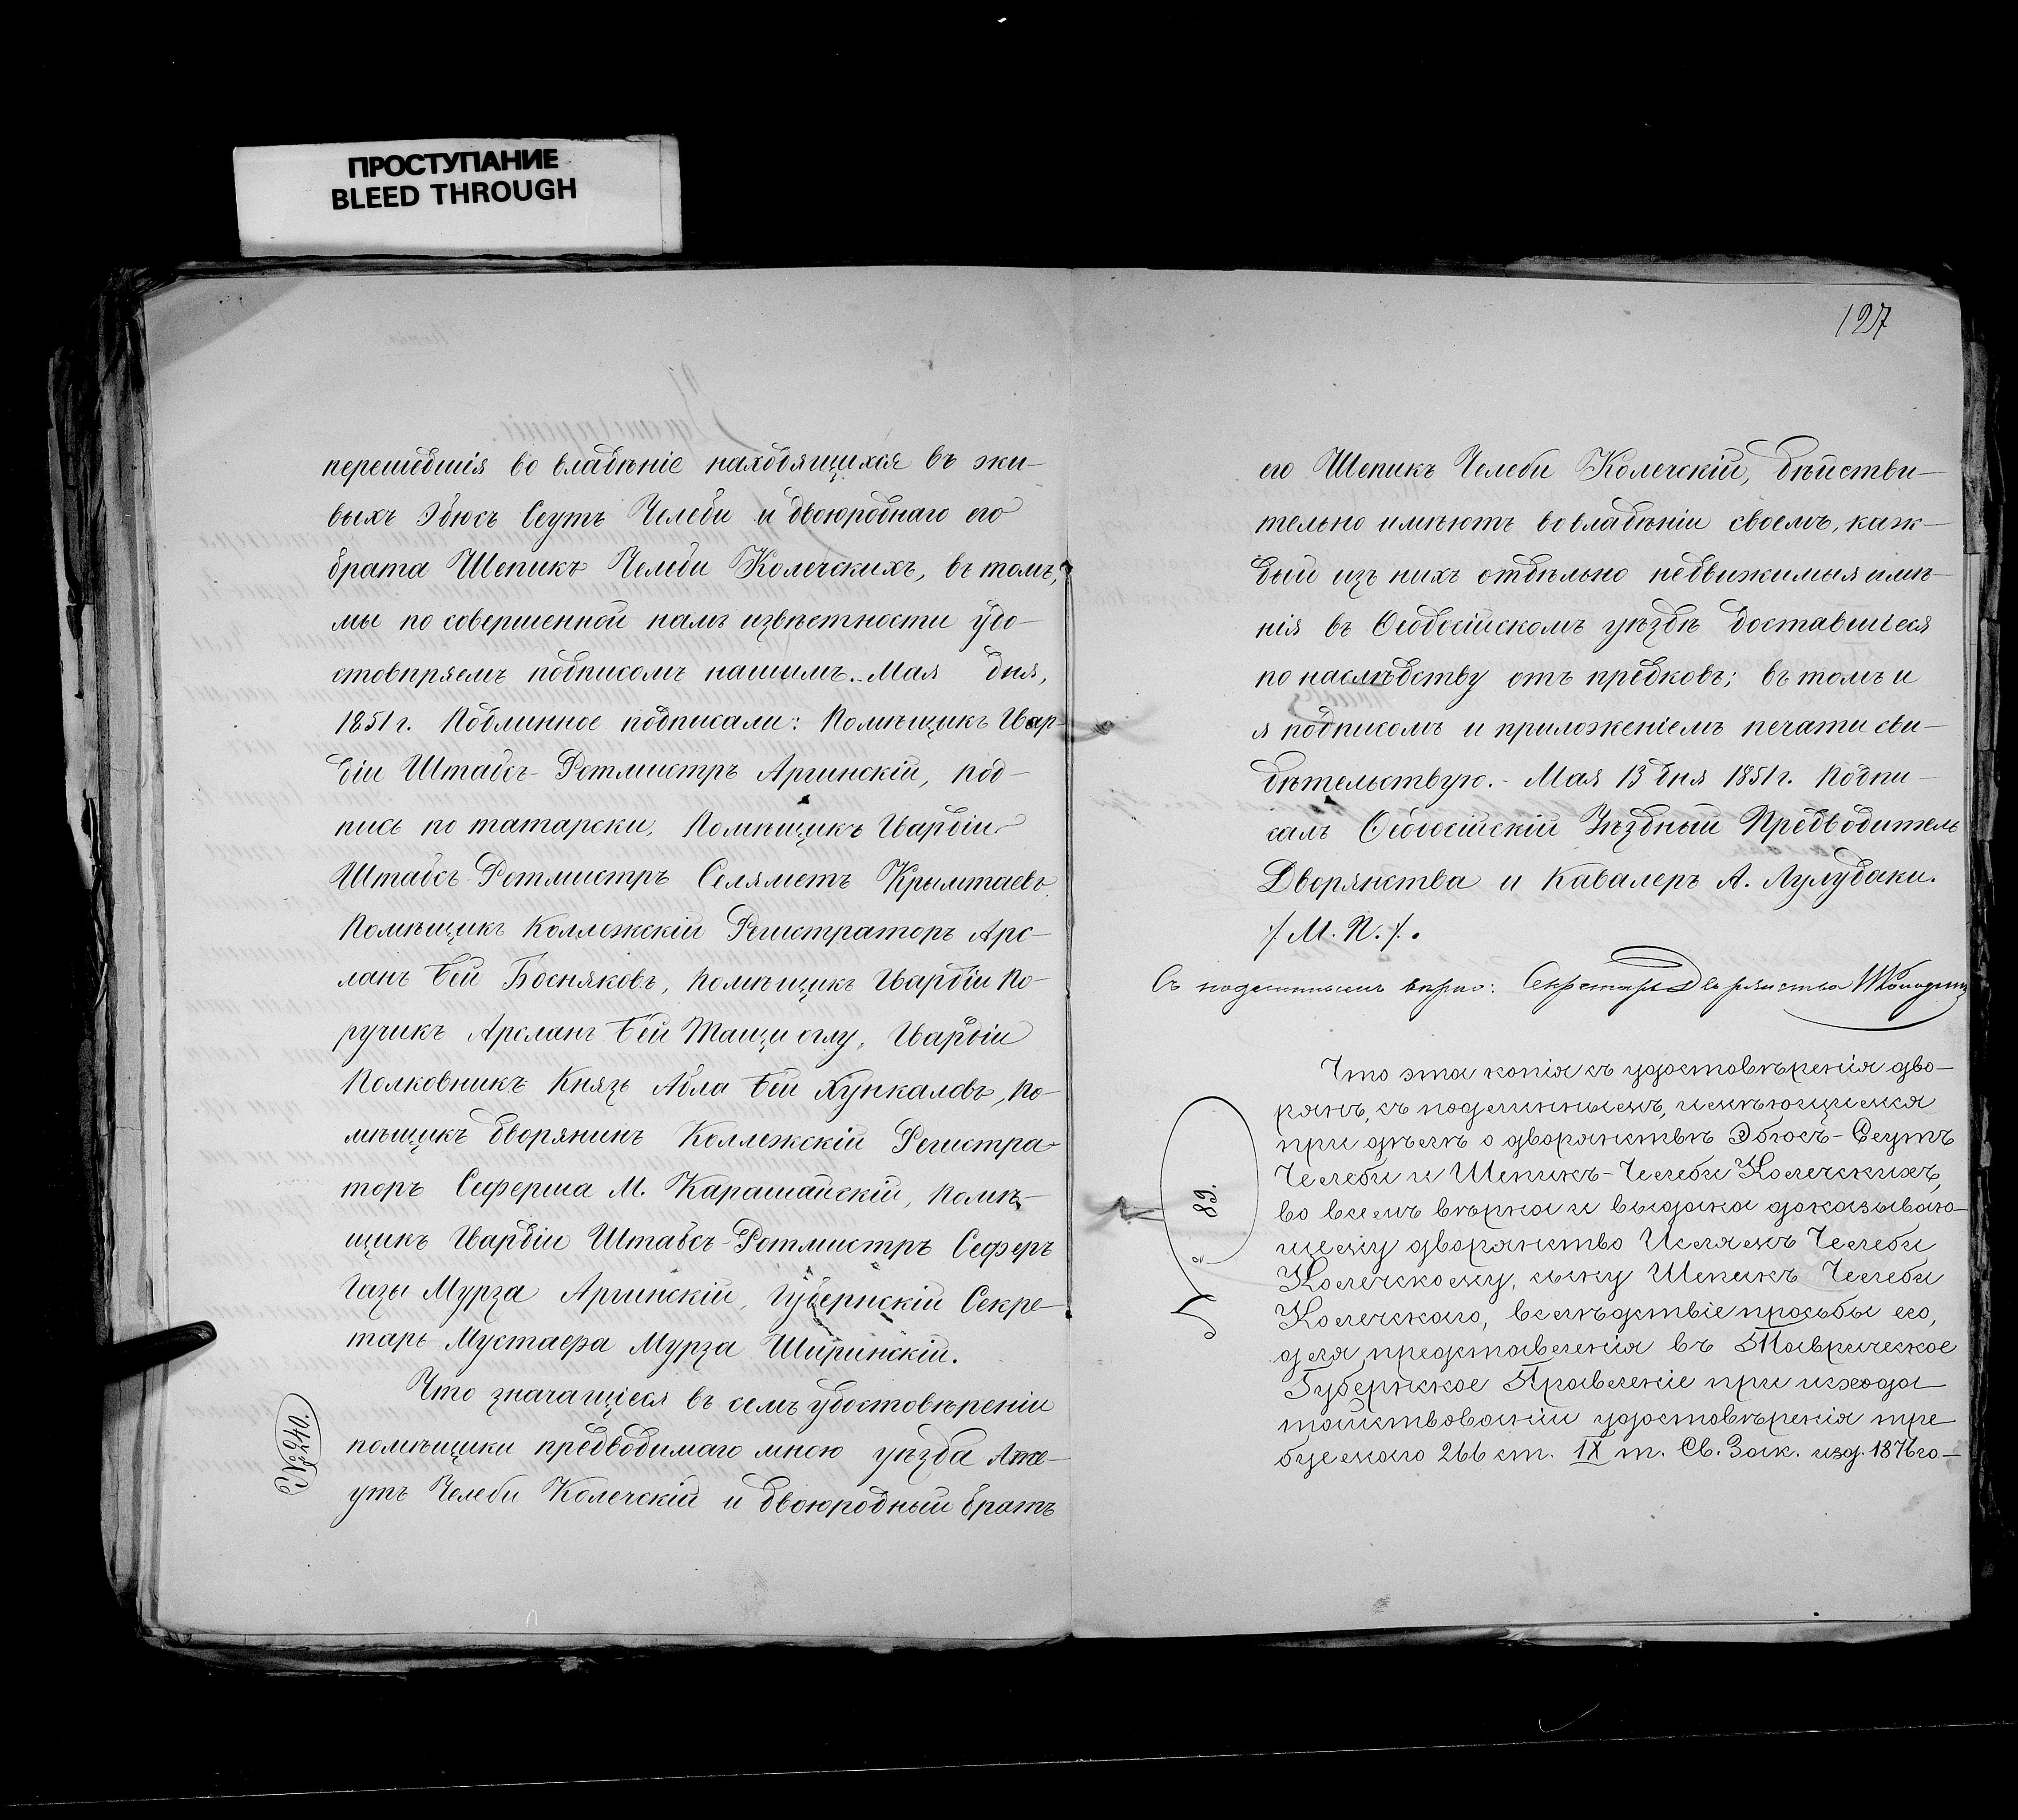 ПРОСТУПАНИЕ
BLEED THROUGH
перешедшія во владѣніе находящихся въ жи-
выхъ Эбюсъ Сеутъ Челеби и двоюроднаго его
брата Шепикъ Челеби Колечскихъ, въ томъ,
мы по совершенной намъ извѣстности удо-
стовѣряемъ подписомъ нашимъ. Мая дня,
1851 г. Подлинное подписали: Помѣщикъ Гвар-
діи Штабсъ-Ротмистръ Аргинскій, под-
пись по татарски, Помѣщикъ Гвардіи
Штабсъ-Ротмистръ Селяметъ Крымтаевъ
Помѣщикъ Коллежскій Регистраторъ Арс-
ланъ Бей Босняковъ, помѣщикъ Гвардіи По-
ручикъ Арсланъ Бей Тащи оглу, Гвардіи
Полковникъ Князь Абла Бей Хункаловъ, по-
мѣщикъ дворянинъ Коллежскій Регистра-
торъ Сиферша М. Карашайскій, помѣ-
щикъ Гвардіи Штабсъ-Ротмистръ Сеферъ
Газы Мурза Аргинскій, Губернскій Секре-
тарь Мустафа Мурза Ширинскій.
Что значащіеся въ семъ удостовѣреніи
помѣщики предводимаго мною уѣзда
утъ Челеби Колечскій и двоюродный братъ
127
его Шепикъ Челеби Колечскій, дѣйстви-
тельно имѣютъ во владѣніи своемъ, каж-
дый изъ нихъ отдѣльно недвижимыя имѣ-
нія въ Ѳеодосійскомъ уѣздѣ доставшіеся
по наслѣдству отъ предковъ; въ томъ и
я подписомъ и приложеніемъ печати сви-
дѣтельствую. - Мая 13 дня 1851 г. Подпи-
салъ Ѳеодосійскій Уѣздный Предводитель
Дворянства и Кавалеръ А. Лулудаки.
/. М. П. /.
Съ подлиннымъ вѣрно: Секретарь Дворянства
№ 89.
Что эта копія съ удостовѣренія дво-
рянъ, съ подлиннымъ, имѣющимся
при дѣлѣ о дворянствѣ Эбюсъ-Сеутъ
Челеби и Шепикъ-Челеби Колечскихъ,
во всемъ вѣрна и выдана доказываю-
щему дворянство Ислямъ Челеби
Колечскому, сыну Шепикъ Челеби
Колечскаго, вслѣдствіе просьбы его,
для представленія въ Таврическое
Губернское Правленіе при исхода-
тайствованіи удостовѣренія тре-
буемаго 266 ст. IX т. Св. Зак. изд. 1876 го-